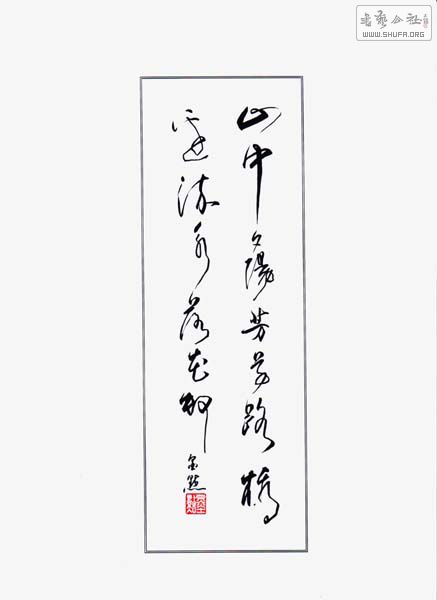 書藝公社
WWW.SHUFA.ORG
山中夕陽芳草路橋
邊流水落花